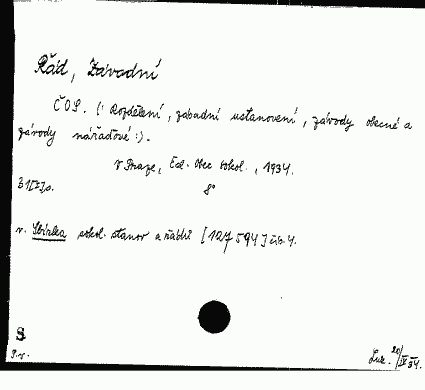 Řád, Závodní
ČOS. (: Rozdělení, zásadní ustanovení, závody obecné a
závody nářaďové :).
V Praze, Ed. Obec sokol., 1934.
8°
v. Sbírka sokol. stanov a řádů [127594] čís. 4.
S